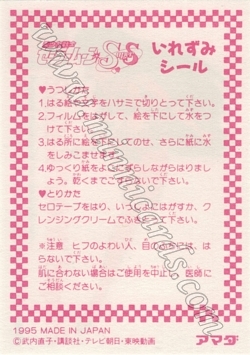 美少女戦士
セーラームーンSuperS
いれずみ
シール
♥うつしかた
1.はる絵や文字をハサミで切りとって下さい。
2.フィルムをはがして、絵を下にして水をつ
けて下さい。
3.はる所に絵を下にしてのせ、さらに紙に水
をしみこませます。
4.ゆっくり紙をよこにずらしながらはりまし
ょう。乾くまでさわらないで下さい。
♥とりかた
セロテープをはり、いっしょにはがすか、ク
レンジングクリームでふきとって下さい。
※注意 ヒフのよわい人、目のふちには、は
らないで下さい。
肌に合わない場合はご使用を中止し、医師に
ご相談ください。
1995 MADE IN JAPAN
©武内直子・講談社・テレビ朝日・東映動画
アマダ
www.mooncards.org